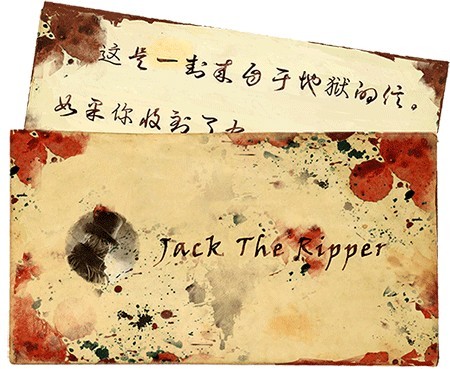 这是一封来自于地狱的信。
如果你收到了
Jack The Ripper